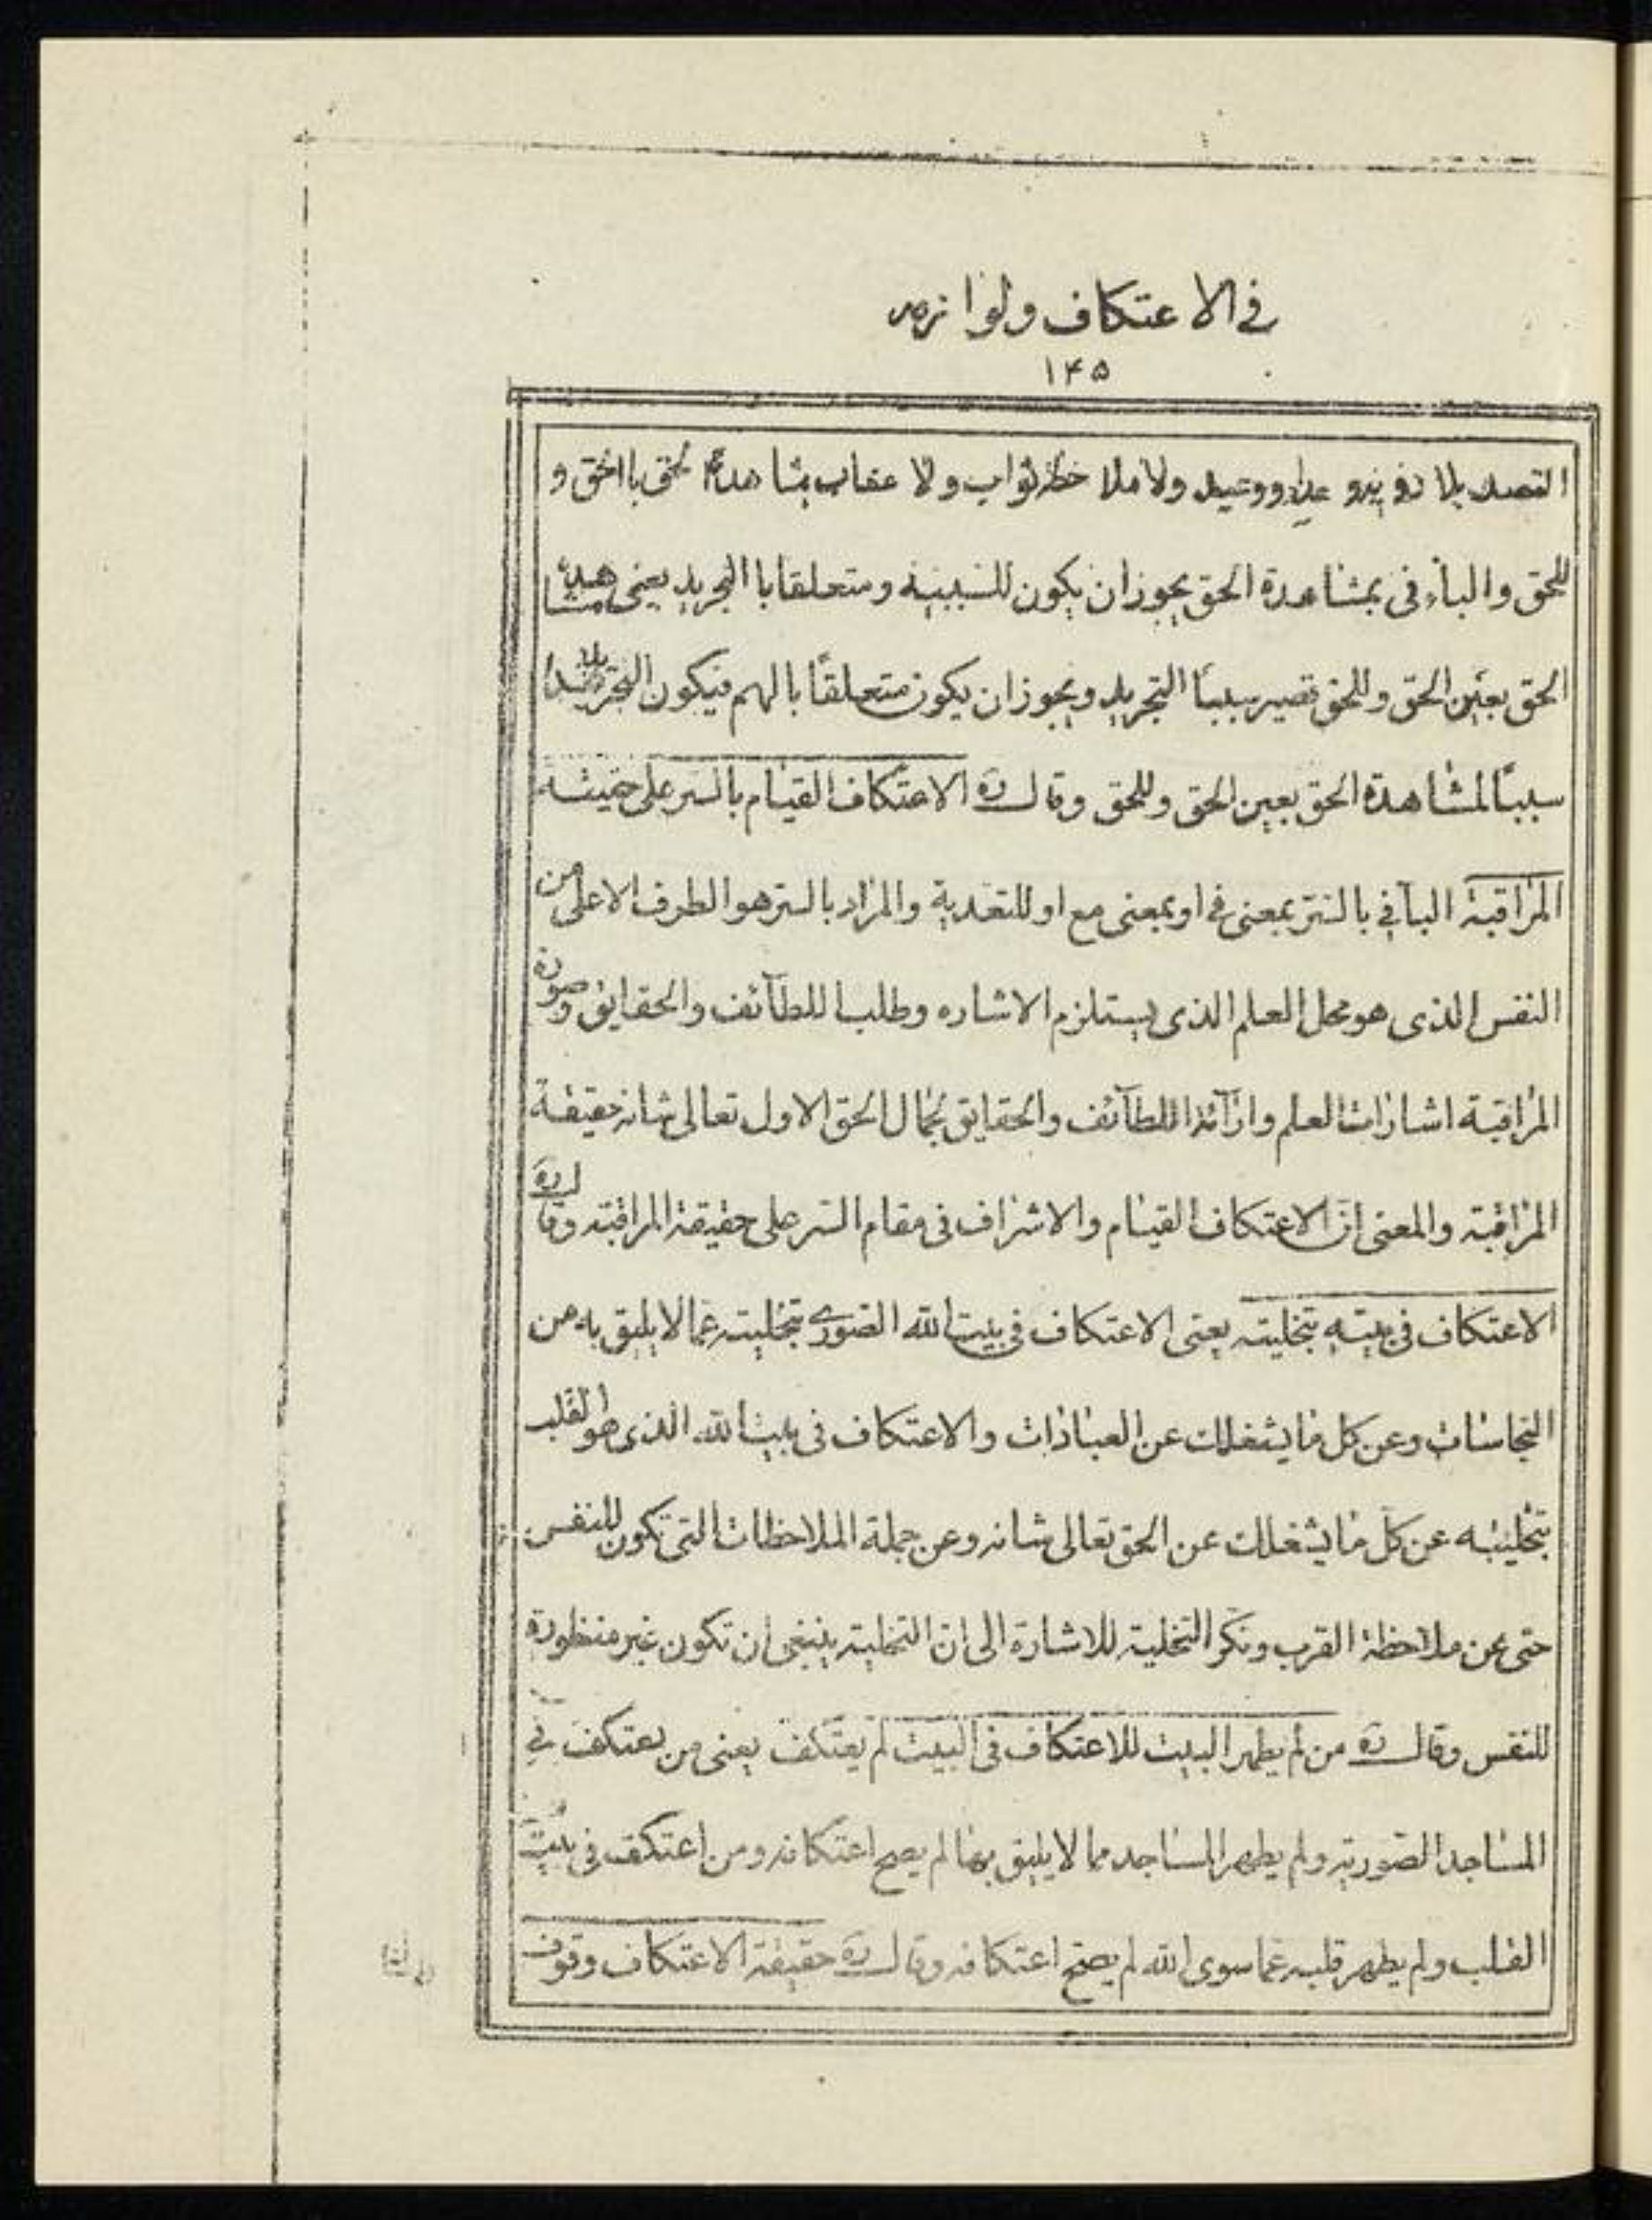 في الاعتكاف ولوازمه
۱۴۵
القصد بلا رؤية وعد ووعيد ولا ملاحظة ثواب ولا عقاب بمشاهدة الحق بالحق و
للحق والباء فى بمشاهدة الحق يجوز ان يكون للسببية ومتعلقا با التجريد يعنى مشاهدة
الحق بعين الحق وللحق تصير سببا التجريد ويجوز ان يكون متعلقًا بالهم فيكون التجريد
سببًا لمشاهدة الحق بعين الحق وللحق وقال ره الاعتكاف القيام بالسر على حقيقة
المراقبة البآ في بالستر بمعنى في او بمعنى مع او للتعدية والمراد بالستر هو الطرف الاعلى من
النفس الذى هو محل العلم الذى يستلزم الاشاره وطلبا للطآئف والحقايق وصورة
المراقبة اشارات العلم وارآئد اللطآئف والحقايق بجمال الحق الاول تعالى شانه حقيقة
المراقبة والمعنى انّ الاعتكاف القيام والاشراف فى مقام السر على حقيقة المراقبة وقال ره
الاعتكاف فى بيته بتخلية يعنى الاعتكاف فى بيت الله الصورى بتخليته عمّا لا يليق به من
النجاسات وعن كل ما يشغلك عن العبادات والاعتكاف فى بيت الله الذى هو القلب
بتخليته عن كلّ ما يشغلك عن الحق تعالى شانه وعن جملة الملاحظات التى تكون للنفس
حتى عن ملاحظة القرب ونكر التخلية للاشارة الى ان التخلية ينبغى ان تكون غير منظورة
للنفس وقال ره من لم يطهر البيت للاعتكاف فى البيت لم يعتكف يعنى من يعتكف في
المساجد الصورية ولم يطهر المساجد مما لا يليق بها لم يصح اعتكافه ومن اعتكف فى بيت
القلب ولم يطهر قلبه عمّا سوى الله لم يصح اعتكافه وقال ره حقيقة الاعتكاف وقوف